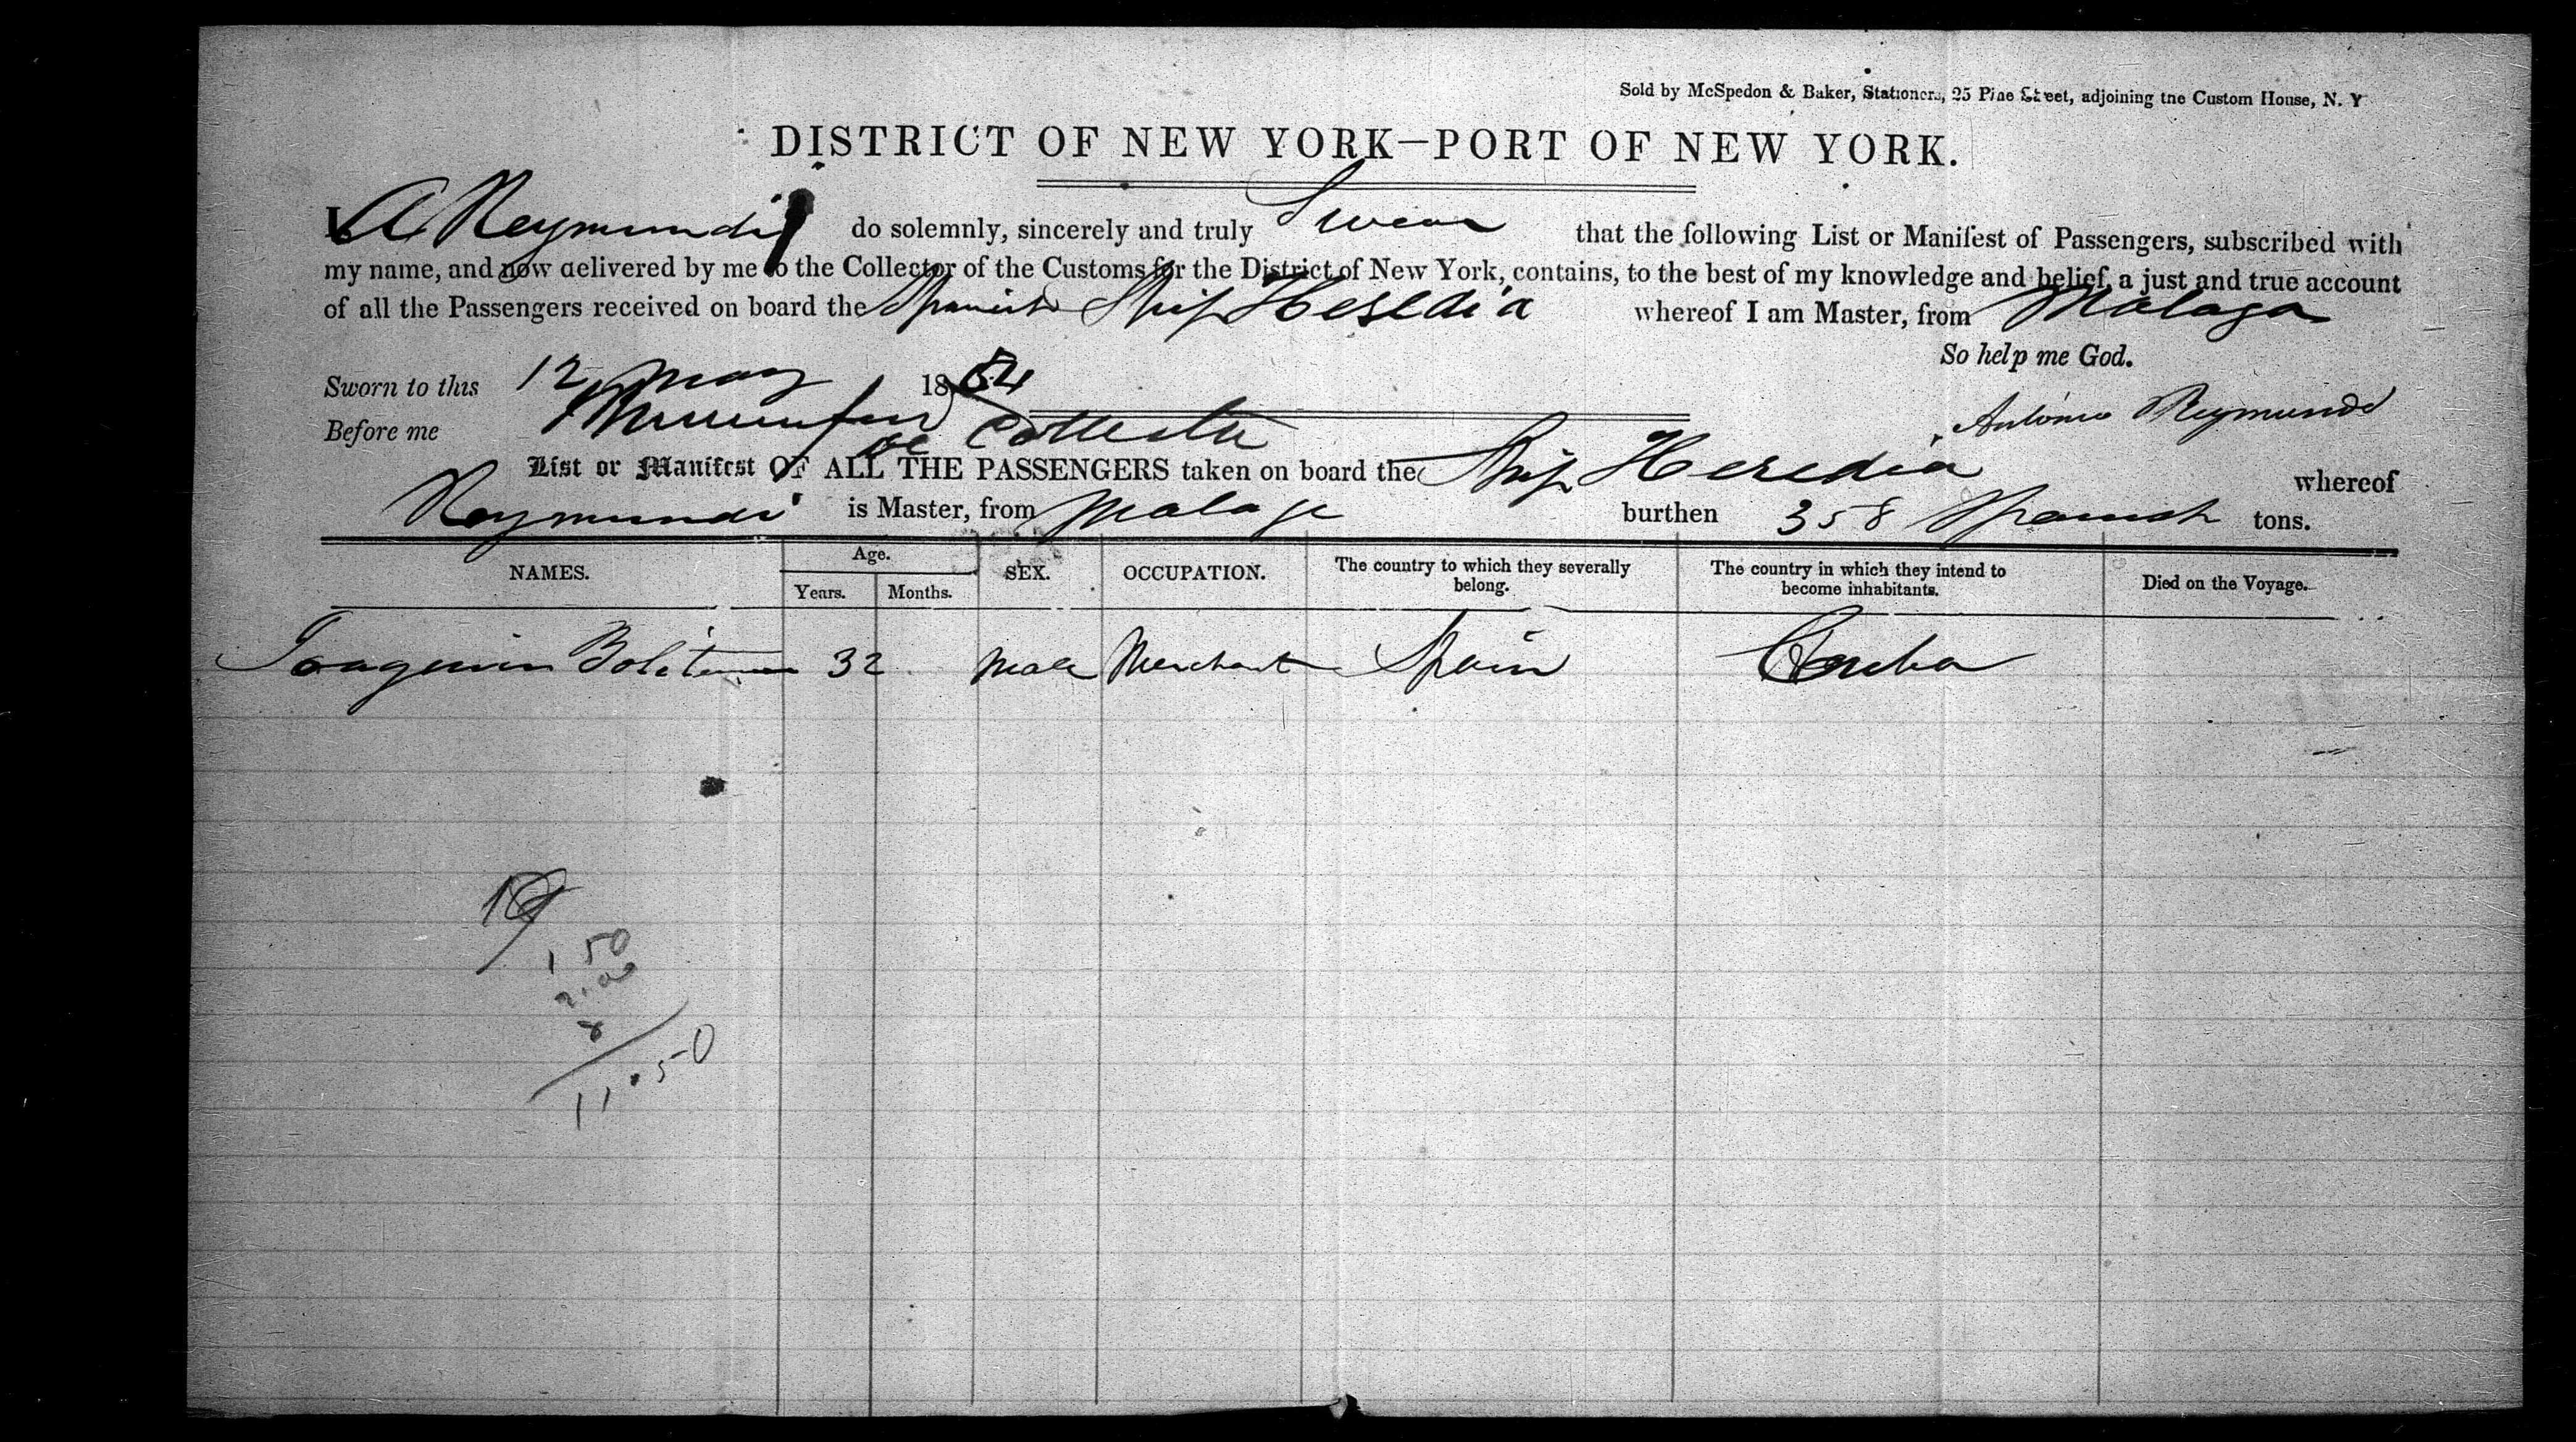 Sold by McSpedon & Baker, Stationers, 25 Pine Street, adjoining the Custom House, N. Y
DISTRICT OF NEW YORK—PORT OF NEW YORK.
I, A Reymundi do solemnly, sincerely and truly Swear that the following List or Manifest of Passengers, subscribed with
my name, and now delivered by me to the Collector of the Customs for the District of New York, contains, to the best of my knowledge and belief, a just and true account
of all the Passengers received on board the Spanish Ship Heredia whereof I am Master, from Malaga
So help me God.
Sworn to this 12 May 1854
Antonio Reymundi
Before me Collector
List or Manifest OF ALL THE PASSENGERS taken on board the Ship Heredia whereof
Reymundi is Master, from Malaga burthen 358 Spanish tons.
NAMES. Age. Years. Months. SEX. OCCUPATION. The country to which they severally belong. The country in which they intend to become inhabitants. Died on the Voyage.
Joaquin 32 Male Merchant Spain Cuba
1 50
2.00
8
11.50